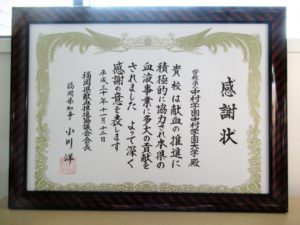 感謝状
学校法人中村学園中村学園大学 殿
貴校は献血の推進に
積極的に協力され本県の
血液事業に多大の貢献を
されました よって深く
感謝の意を表します
平成三十年十一月十三日
福岡県献血推進協議会会長
福岡県知事 小川 洋